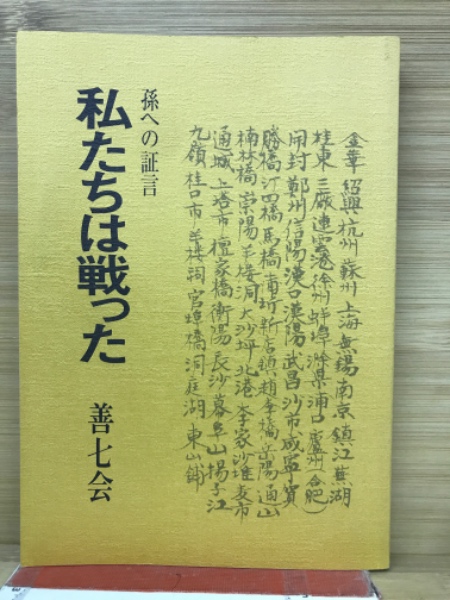 金華 紹興 杭州 蘇州 上海 無錫 南京 鎮江 蕪湖
桂東 三廠 連雲港 徐州 蚌埠 滁県 浦口 廬州(合肥)
開封 鄭州 信陽 漢口 漢陽 武昌 沙市 咸寧 賀
勝橋 汀四橋 馬橋 南圻 新店鎮 趙李橋 岳陽 通山
楠林橋 崇陽 羊楼洞 大沙坪 北港 李家沙堆 麦市
通城 上塔市 檀家橋 衡陽 長沙 幕阜山 揚子江
九嶺 桂口市 羊楼洞 官埠橋 洞庭湖 東山鋪
孫への証言
私たちは戦った
善七会